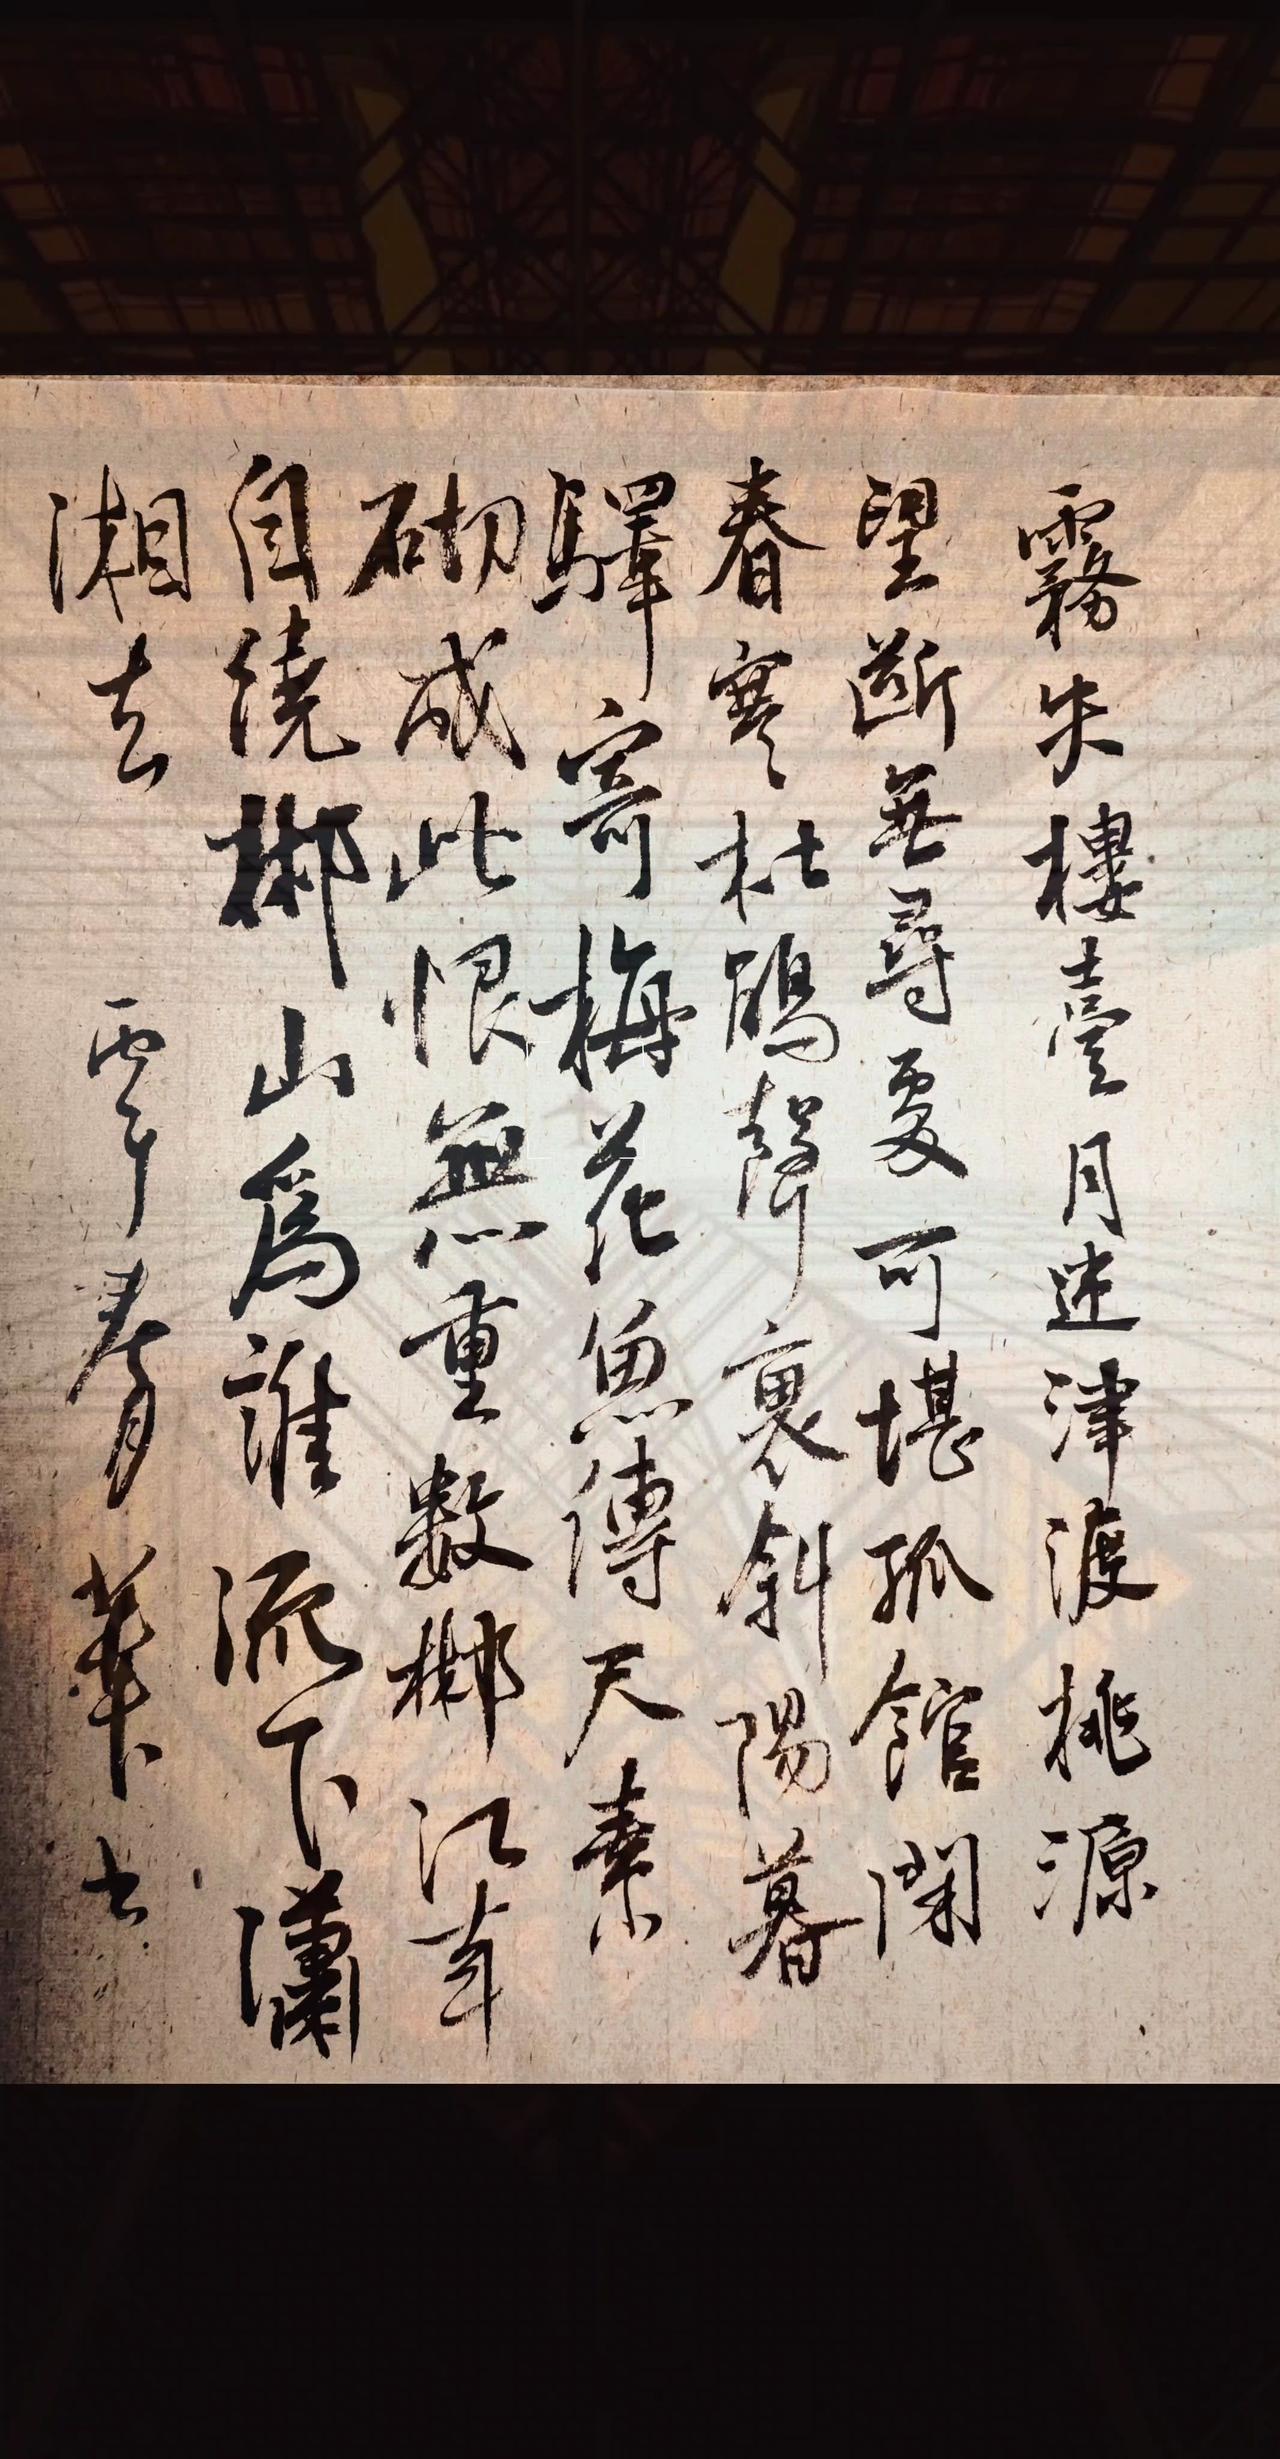 霧失樓臺月迷津渡桃源
望斷無尋處可堪孤館閉
春寒杜鵑聲裏斜陽暮
驛寄梅花魚傳尺素
砌成此恨無重數郴江幸
自繞郴山爲誰流下瀟
湘去